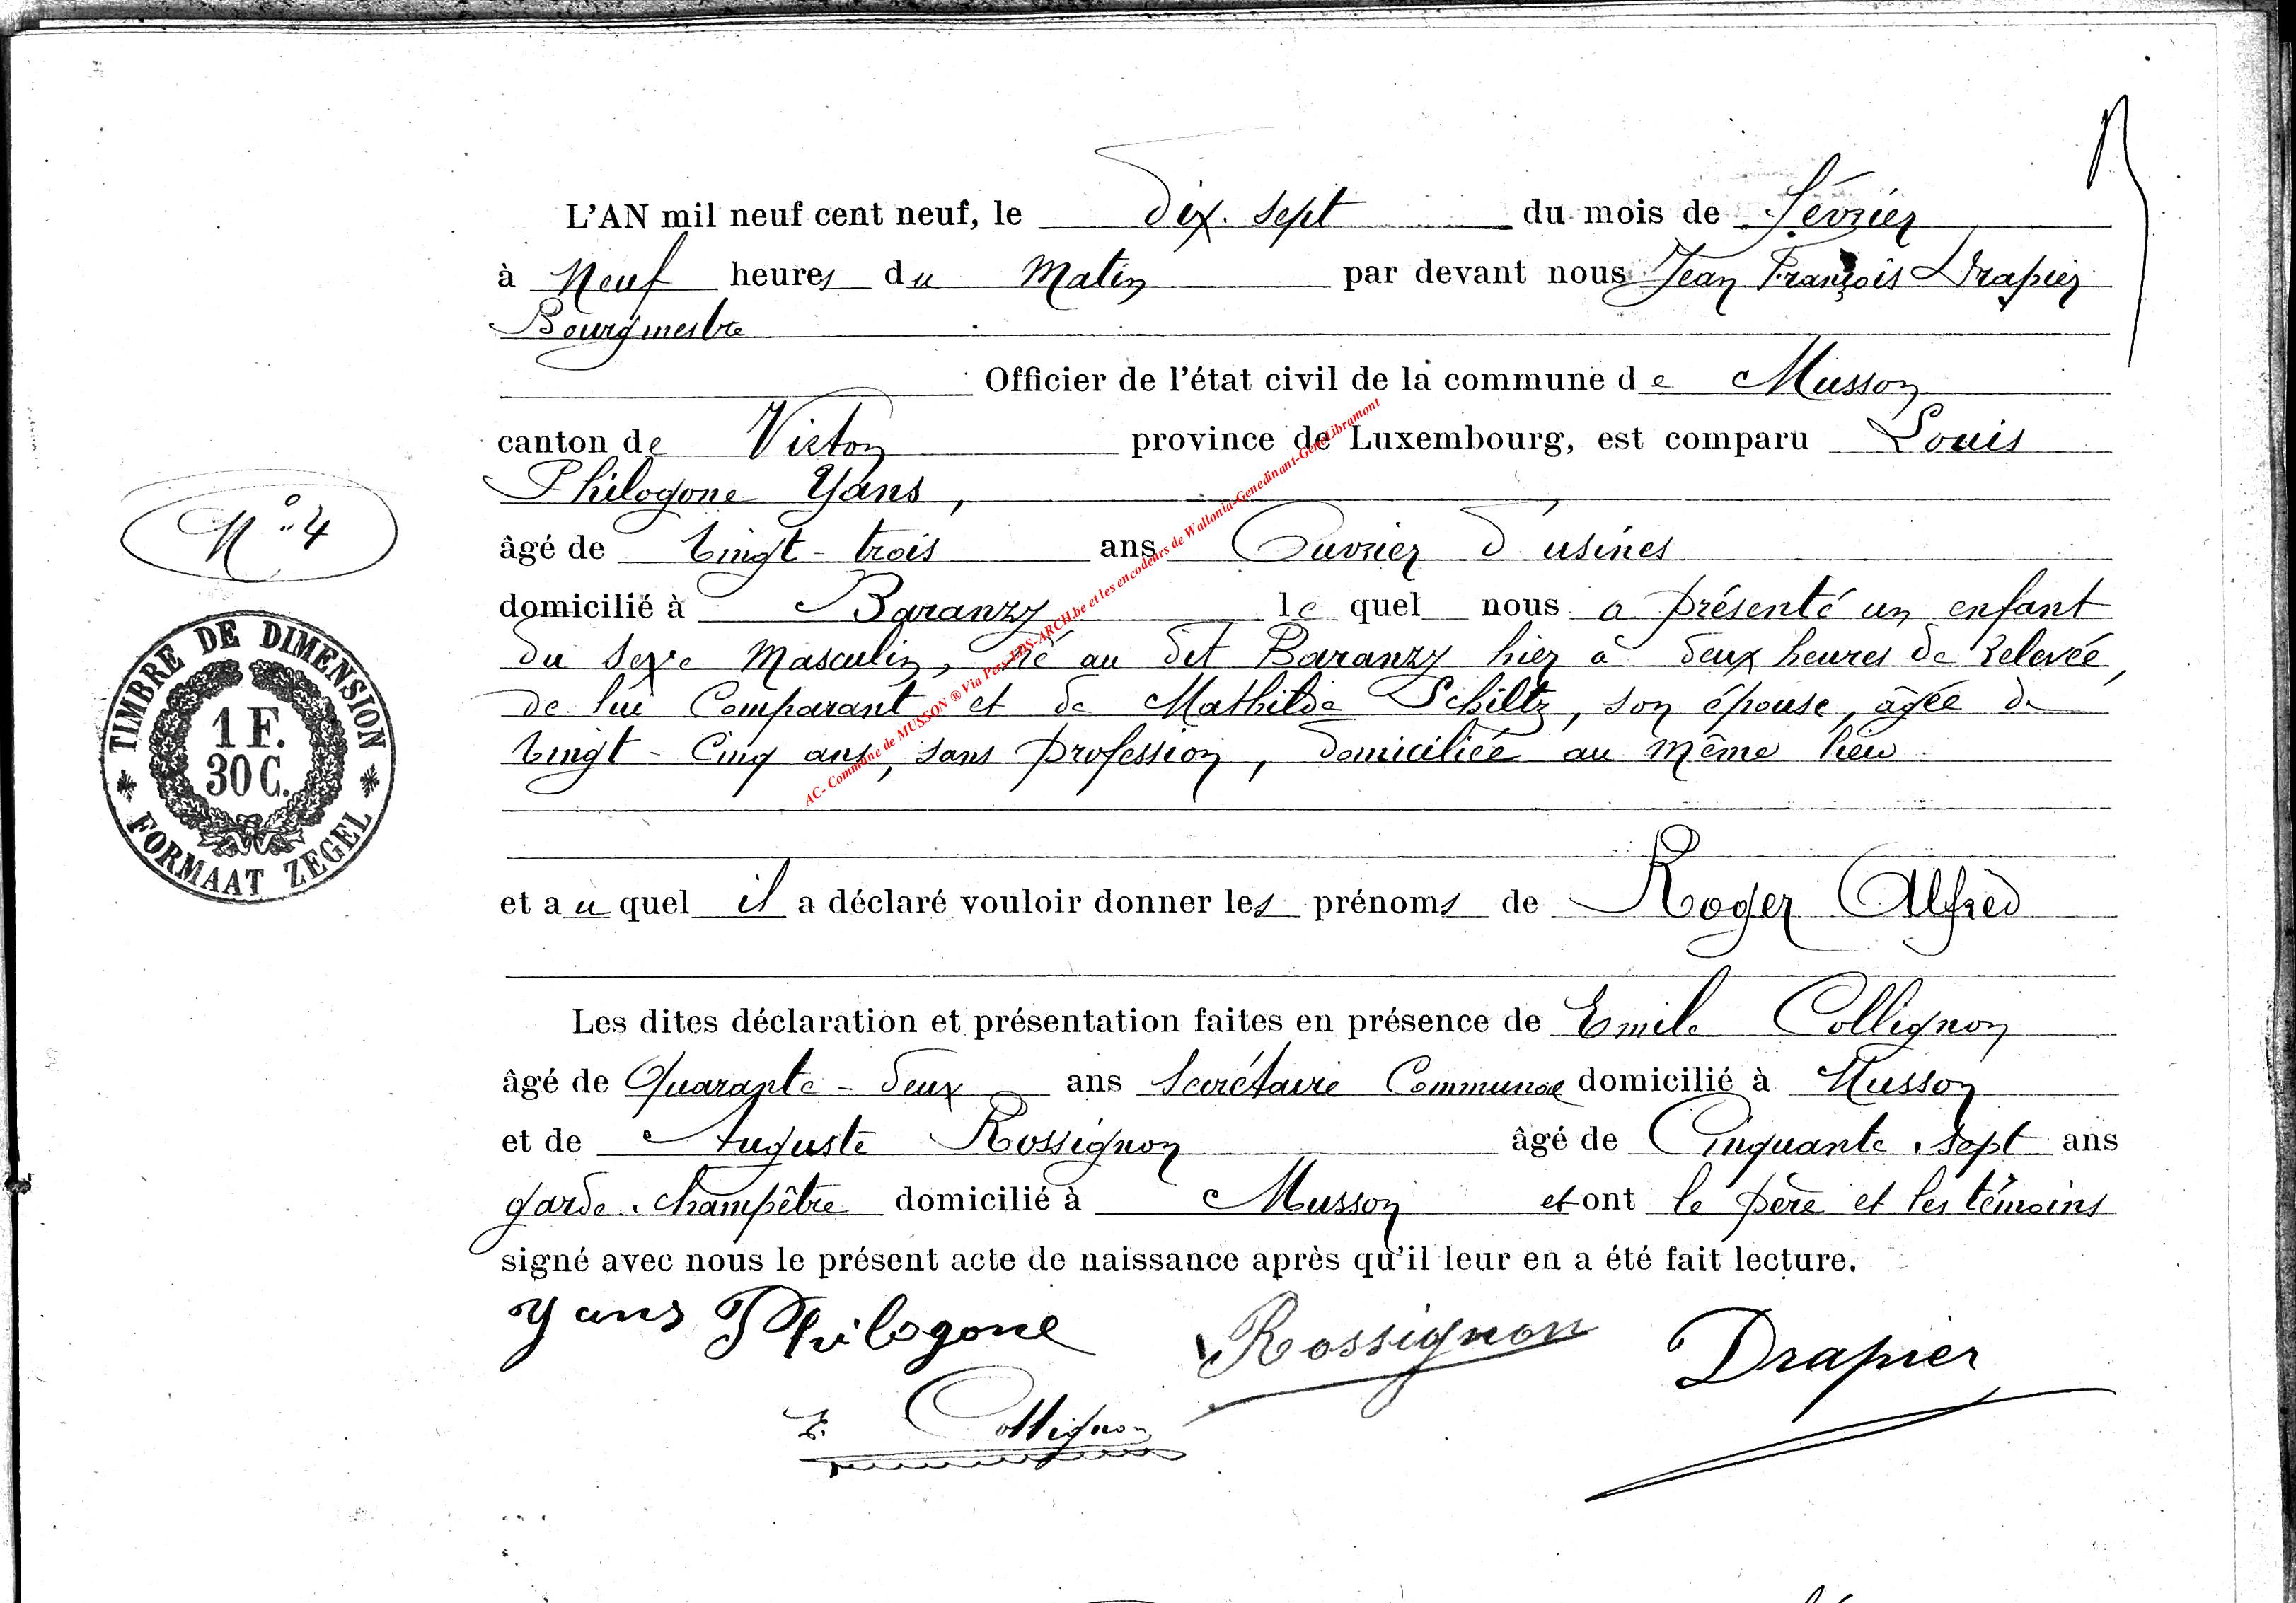 L'AN mil neuf cent neuf, le dix-sept du mois de Février
à Neuf heures du Matin par devant nous Jean François Drapier
Bourgmestre
Officier de l'état civil de la commune de Musson
canton de Virton province de Luxembourg, est comparu Louis
Philogone Yans,
N° 4
âgé de vingt-trois ans Ouvrier d'usines
domicilié à Baranzy lequel nous a présenté un enfant
du sexe Masculin, né au dit Baranzy hier à deux heures de relevée,
de lui Comparant et de Mathilde Schiltz, son épouse, âgée de
vingt-cinq ans, sans profession, domiciliée au même lieu.
TIMBRE DE DIMENSION
1 F.
30 C.
FORMAAT ZEGEL
AC- Commune de MUSSON ® Via Pers-LDS-ARCH.be et les encodeurs de Wallonia-Genedinant-GeneLibramont
et au quel il a déclaré vouloir donner les prénoms de Roger Alfred
Les dites déclaration et présentation faites en présence de Emile Collignon
âgé de Quarante-deux ans Secrétaire Communal domicilié à Musson
et de Auguste Rossignon âgé de Cinquante-sept ans
garde-champêtre domicilié à Musson et ont le père et les témoins
signé avec nous le présent acte de naissance après qu'il leur en a été fait lecture.
Yans Philogone Rossignon Drapier
E. Collignon